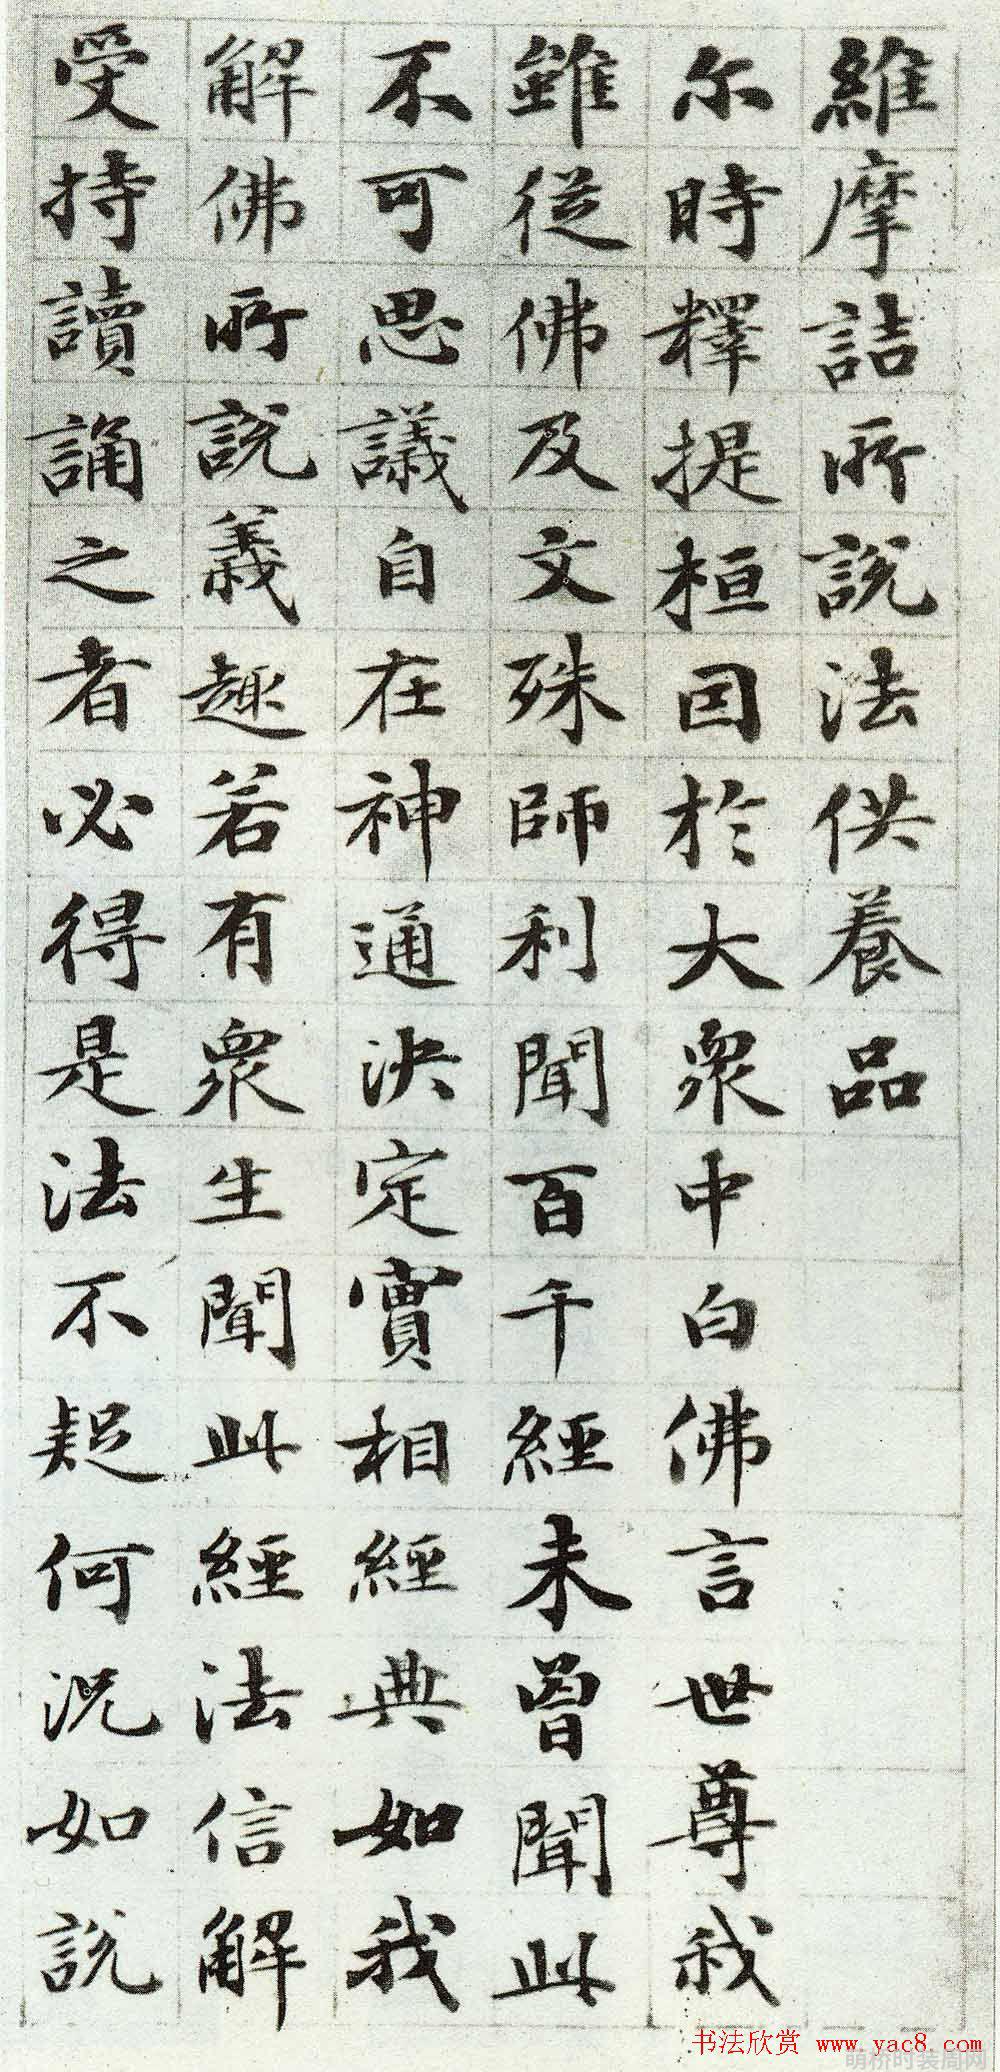 維摩詰所說法供養品
尔時釋提桓因於大衆中白佛言世尊我
雖從佛及文殊師利聞百千經未曾聞此
不可思議自在神通決定實相經典如我
解佛所說義趣若有衆生聞此經法信解
受持讀誦之者必得是法不疑何況如說
书法欣赏 www.yac8.com
萌桥时装周网